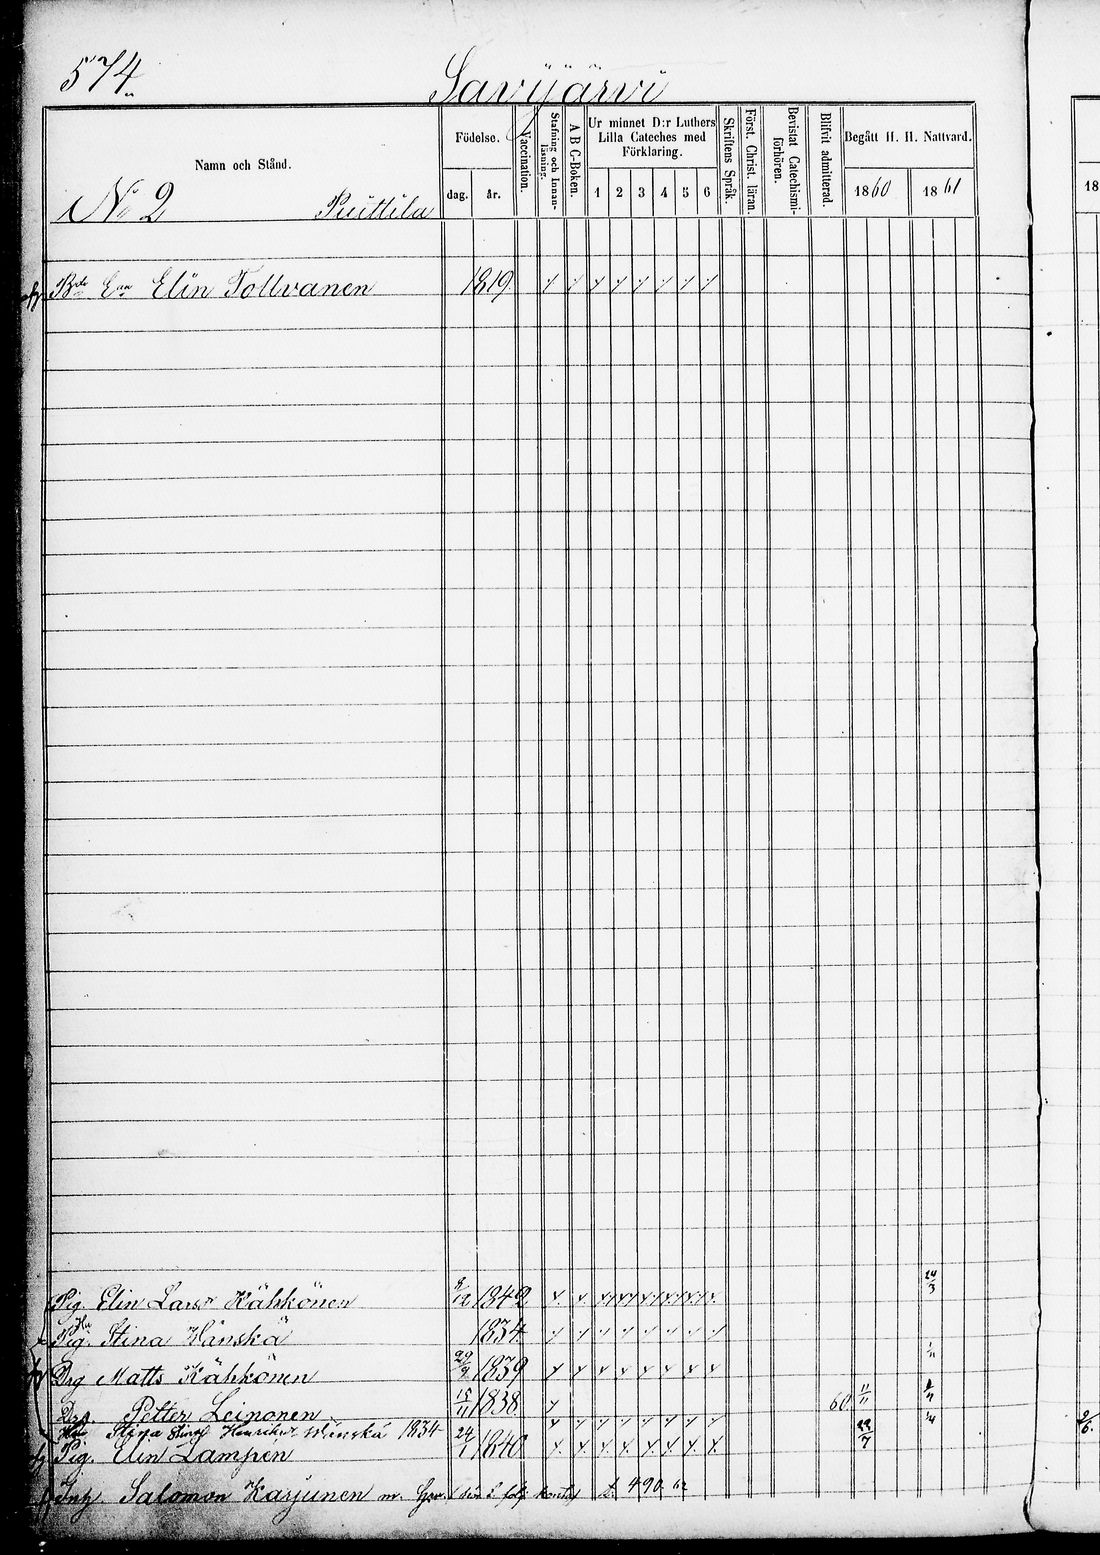 574
Savijärvi
Namn och Stånd.
Födelse.
dag.
år.
Vaccination.
Stafning och Innanläsning.
A B C-Boken.
Ur minnet D:r Luthers Lilla Cateches med Förklaring.
1 2 3 4 5 6
Skriftens Språk.
Först. Christ. läran.
Bevistat Catechismiförhören.
Blifvit admitterad.
Begått H. H. Nattvard.
1860
1861
18
No 2 Puttila
Elin Tollvanen 1819
Pig. Elin Larsdr Kähkönen 8/12 1842 24/3
Pig. Stina Hänskä 1834
Drg Matts Kähkönen 29/9 1839
Drg Petter Leinonen 15/11 1838 60 11/11
Stina Henriksdr Hänskä 1834
Pig. Elin Lampen 24/1 1840 22/7
Inh. Salomon Karjunen m. 490